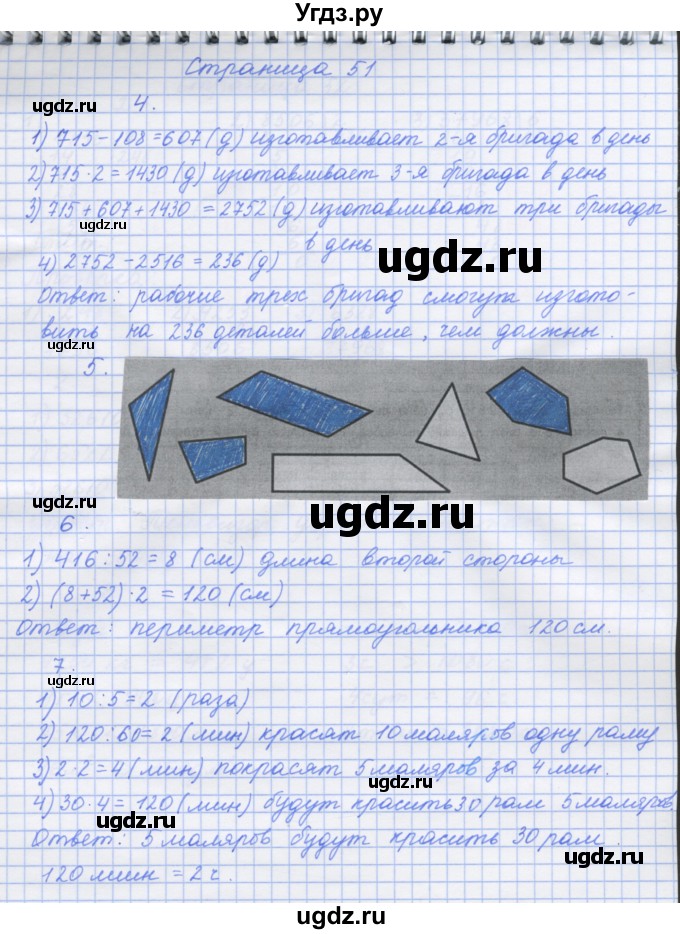 Угдз.ру
Страница 51
ugdz.ru
4.
1) 715-108=607(д) изготавливает 2-я бригада в день
2) 715·2=1430(д) изготавливает 3-я бригада в день
3) 715+607+1430=2752(д) изготавливают три бригады
в день
ugdz.ru
4) 2752-2516=236(д)
Ответ: рабочие трех бригад смогут изгото-
вить на 236 деталей больше, чем должны.
ugdz.ru
5.
ugdz.ru
ugdz.ru
6.
1) 416:52=8 (см) длина второй стороны
2) (8+52)·2=120(см)
Ответ: периметр прямоугольника 120см.
7.
ugdz.ru
1) 10:5=2 (раза)
2) 120:60=2 (мин) красят 10 маляров одну раму
3) 2·2=4 (мин) покрасят 5 маляров за 4 мин.
4) 30·4=120(мин) будут красить 30 рам 5 маляров.
ugdz.ru
Ответ: 5 маляров будут красить 30 рам.
ugdz.ru
120 мин = 2 ч.
ugdz.ru